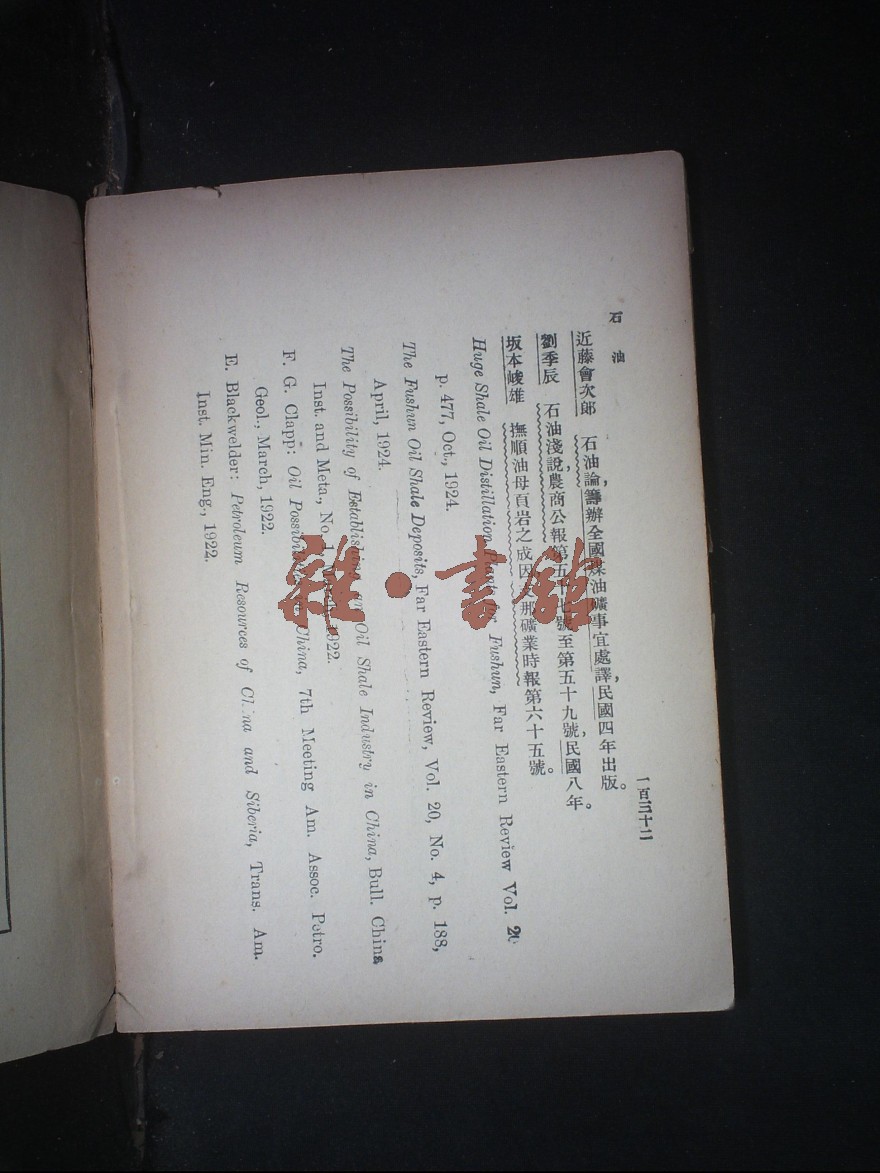 石油
一百三十二
近藤會次郎 石油論,籌辦全國煤油礦事宜處譯,民國四年出版。
劉季辰 石油淺說,農商公報第五十七號至第五十九號,民國八年。
坂本峻雄 撫順油母頁岩之成因,支那礦業時報第六十五號。
Huge Shale Oil Distillation Plant for Fushun, Far Eastern Review Vol. 20
p. 477, Oct., 1924.
The Fushun Oil Shale Deposits, Far Eastern Review, Vol. 20, No. 4, p. 188,
April, 1924.
The Possibility of Establishing an Oil Shale Industry in China, Bull. China
Inst. and Meta., No. 1, 1922.
F. G. Clapp: Oil Possibilities in China, 7th Meeting Am. Assoc. Petro.
Geol., March, 1922.
E. Blackwelder: Petroleum Resources of China and Siberia, Trans. Am.
Inst. Min. Eng., 1922.
雜·書館